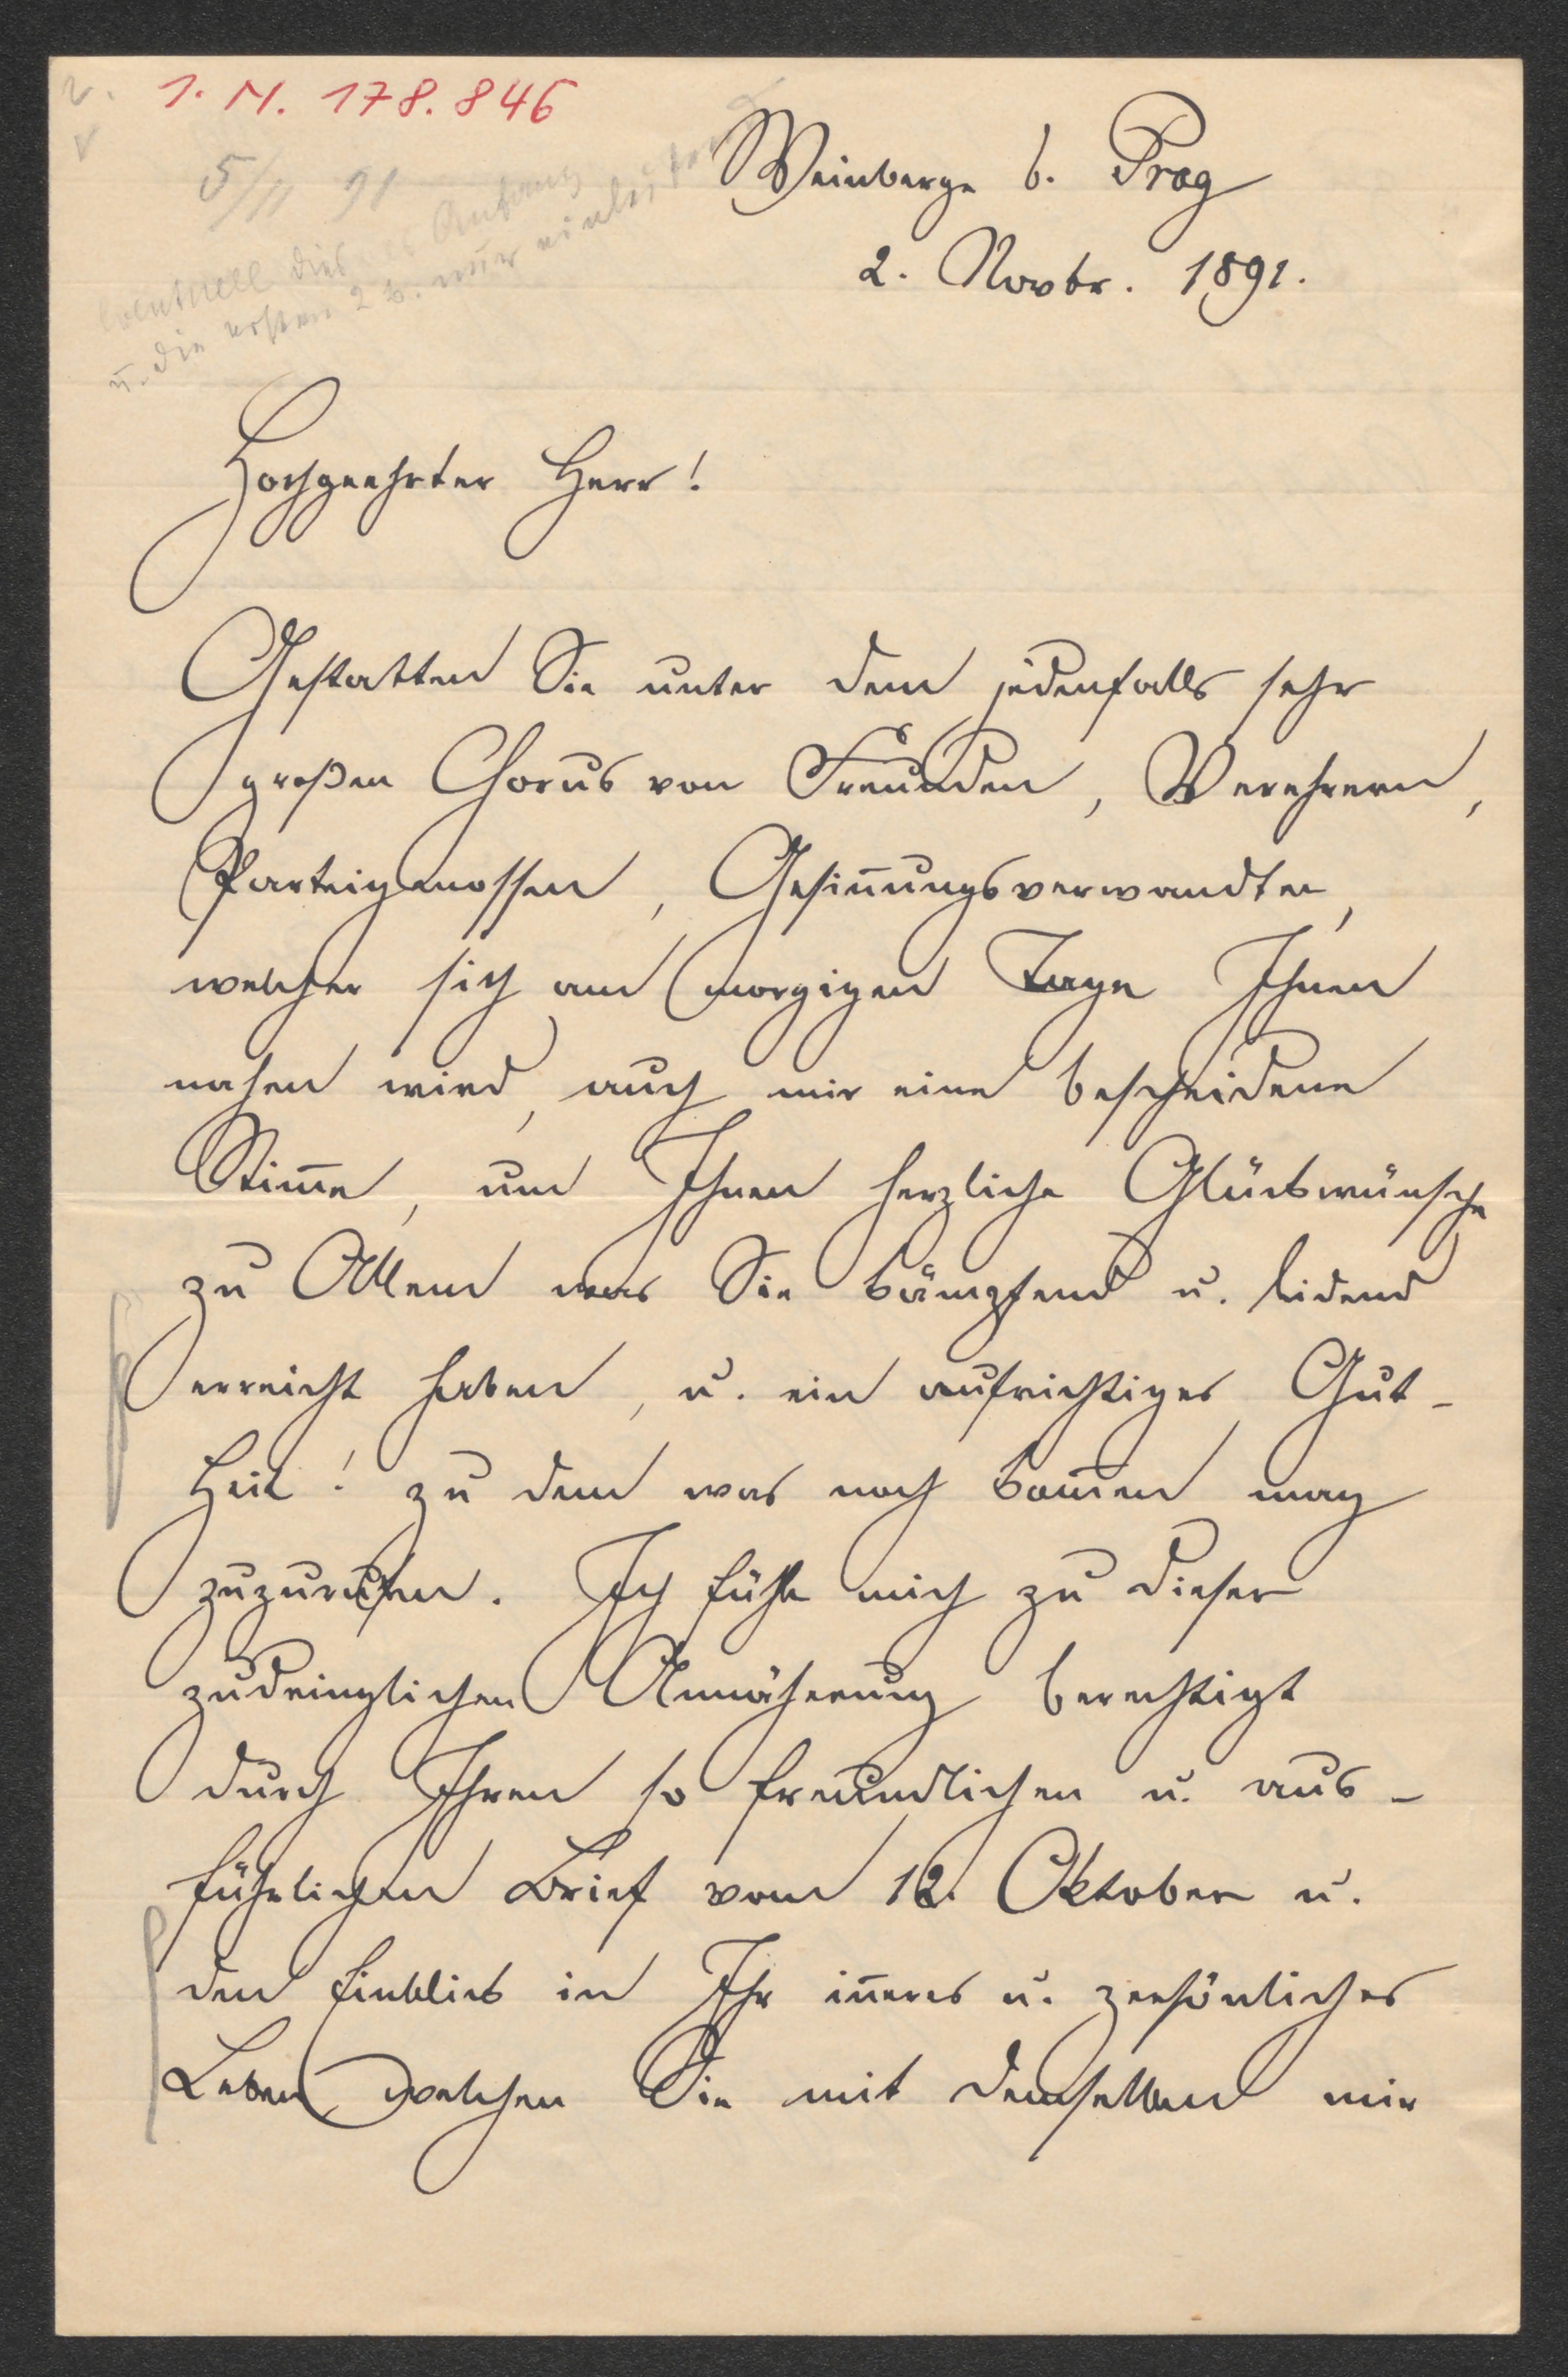 I. N. 178.846
5/11 91
eventuell dies als Anfang
u. die ersten 2 B. nur einleitend
Weinberge b. Prag
2. Novbr. 1891.
Hochgeehrter Herr!
Gestatten Sie unter dem jedenfalls sehr
großen Chorus von Freunden, Verehrern,
Parteigenossen, Gesinnungsverwandten,
welcher sich am morgigen Tage Ihnen
nahen wird, auch mir eine bescheidene
Stim̅e, um Ihnen herzliche Glückwünsche
zu Allem was Sie kämpfend u. leidend
erreicht haben, u. ein aufrichtiges Gut-
Heil! zu dem was noch kom̅en mag
zuzurufen. Ich fühle mich zu dieser
zudringlichen Annäherung berechtigt
durch Ihren so freundlichen u. aus-
führlichen Brief vom 12. Oktober u.
den Einblick in Ihr in̅eres u. persönliches
Leben welchen Sie mit demselben mir